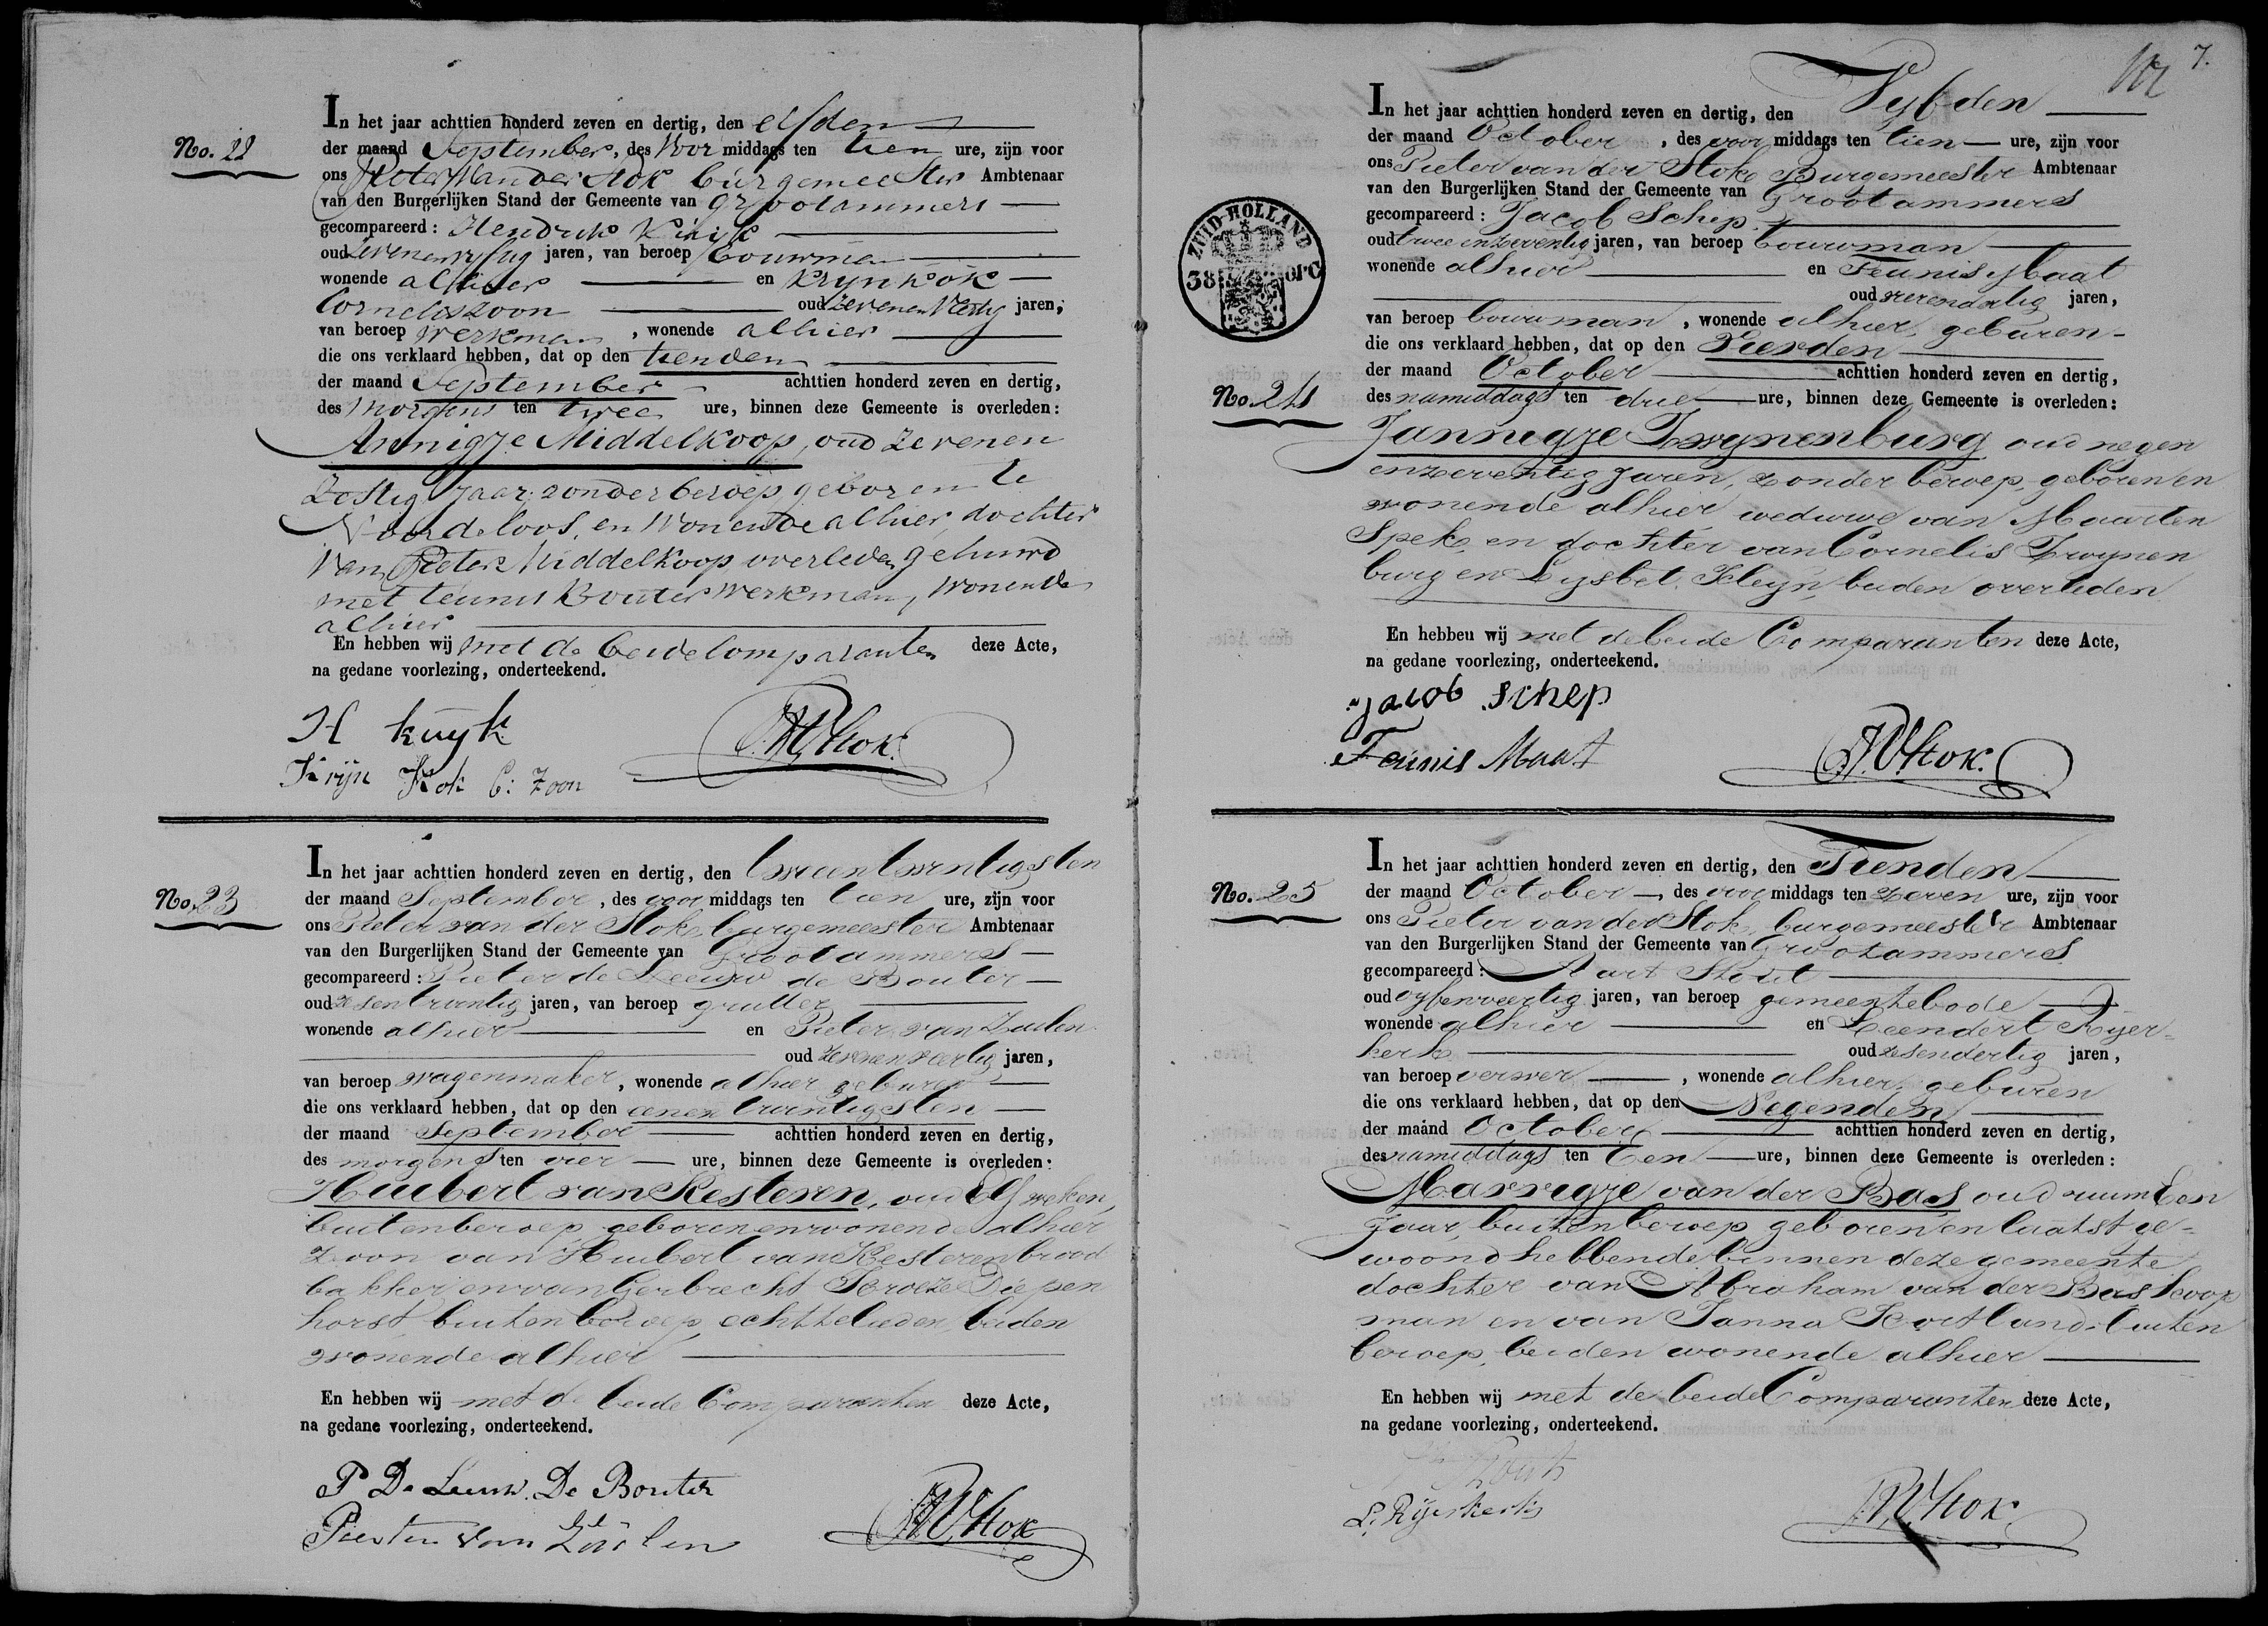 No. 22
In het jaar achttien honderd zeven en dertig, den elfden
der maand September, des Voor middags ten tien ure, zijn voor
ons Pieter van der Stok burgemeester Ambtenaar
van den Burgerlijken Stand der Gemeente van Grootammers
gecompareerd: Hendrik Kuijk
oud jaren, van beroep bouwman
wonende alhier en Krijn Kok
Corneliszoon oud jaren,
van beroep werkman, wonende alhier
die ons verklaard hebben, dat op den tienden
der maand September achttien honderd zeven en dertig,
des morgens ten twee ure, binnen deze Gemeente is overleden:
Annigje Middelkoop, oud zevenen
Zestig Jaar zonder beroep geboren te
Noordeloos, en Wonende alhier, dochter
van Pieter Middelkoop overleden gehuwd
met teunis Bouter werkman, wonende
alhier
En hebben wij met de beide Comparanten deze Acte,
na gedane voorlezing, onderteekend.
H kuyk
PVStok.
Krijn Kok C: Zoon
No. 23
In het jaar achttien honderd zeven en dertig, den tweentwentigsten
der maand September, des voor middags ten tien ure, zijn voor
ons Pieter van der Stok, burgemeester Ambtenaar
van den Burgerlijken Stand der Gemeente van Grootammers
gecompareerd: Pieter de Leeuw de Bouter
oud zesentwentig jaren, van beroep grutter
wonende alhier en Pieter van Zuilen
oud zevenenveertig jaren,
van beroep wagenmaker, wonende alhier geburen
die ons verklaard hebben, dat op den eenen twentigsten
der maand September achttien honderd zeven en dertig,
des morgens ten vier ure, binnen deze Gemeente is overleden:
Huibert van Kesteren, oud Elf weken,
buitenberoep, geboren en wonende alhier
zoon van Huibert van Kesteren brood
bakker en van Gerbrecht Broeze Diepen
horst, buiten beroep, echtelieden, beiden
wonende alhier
En hebben wij met de beide Comparanten deze Acte,
na gedane voorlezing, onderteekend.
P De Leeuw. De Bouter
PVStok
Pieter van Züilen
7.
ZUID-HOLLAND
38
No. 24
In het jaar achttien honderd zeven en dertig, den Vyfden
der maand October, des voor middags ten tien ure, zijn voor
ons Pieter van der Stok, Burgemeester Ambtenaar
van den Burgerlijken Stand der Gemeente van Grootammers
gecompareerd: Jacob Schep
oud twee enzeventig jaren, van beroep bouwman
wonende alhier en Teunis Maat
oud jaren,
van beroep bouwman, wonende alhier, geburen
die ons verklaard hebben, dat op den Vierden
der maand October achttien honderd zeven en dertig,
des namiddags ten drie ure, binnen deze Gemeente is overleden:
Jannigje Twynenburg oud negen
enzeventig jaren, zonder beroep, geboren en
wonende alhier, weduwe van Maarten
Spek, en dochter van Cornelis Twynen
burg en Lysbet Kleyn, beiden overleden
En hebben wij met de beide Comparanten deze Acte,
na gedane voorlezing, onderteekend.
Jacob Schep
Teunis Maat
PVStok.
No. 25
In het jaar achttien honderd zeven en dertig, den Tienden
der maand October, des voor middags ten zeven ure, zijn voor
ons Pieter van der Stok, burgemeester Ambtenaar
van den Burgerlijken Stand der Gemeente van Grootammers
gecompareerd: Aart Stout
oud vyfenveertig jaren, van beroep gemeentebode
wonende alhier en Leendert Ryer-
kerk oud zesendertig jaren,
van beroep verwer, wonende alhier, geburen
die ons verklaard hebben, dat op den Negenden
der maand October achttien honderd zeven en dertig,
des namiddags ten Een ure, binnen deze Gemeente is overleden:
Marrigje van der Bas oud ruim Een
jaar, buiten beroep, geboren en laatst ge-
woond hebbende binnen deze gemeente
dochter van Abraham van der Bas koop
man en van Janna Kortland, buiten
beroep, beiden wonende alhier
En hebben wij met de beide Comparanten deze Acte,
na gedane voorlezing, onderteekend.
Stout
L. Ryerkerk
PVStok.